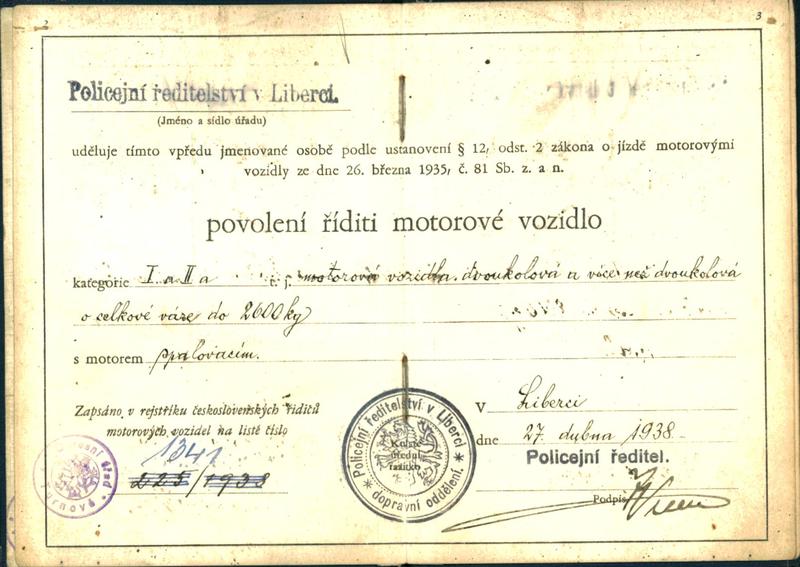 2
3
Policejní ředitelství v Liberci.
(Jméno a sídlo úřadu)
uděluje tímto vpředu jmenované osobě podle ustanovení § 12, odst. 2 zákona o jízdě motorovými
vozidly ze dne 26. března 1935, č. 81 Sb. z. a n.
povolení říditi motorové vozidlo
kategorie I a II a t. j. motorová vozidla dvoukolová a více než dvoukolová
o celkové váze do 2600 kg
s motorem spalovacím.
Zapsáno v rejstříku československých řidičů
motorových vozidel na listě číslo
1341
225/1938
Policejní ředitelství v Liberci
dopravní oddělení.
Kulaté
úřední
razítko
V Liberci
dne 27. dubna 1938.
Policejní ředitel.
Podpis
úřad
Turnově